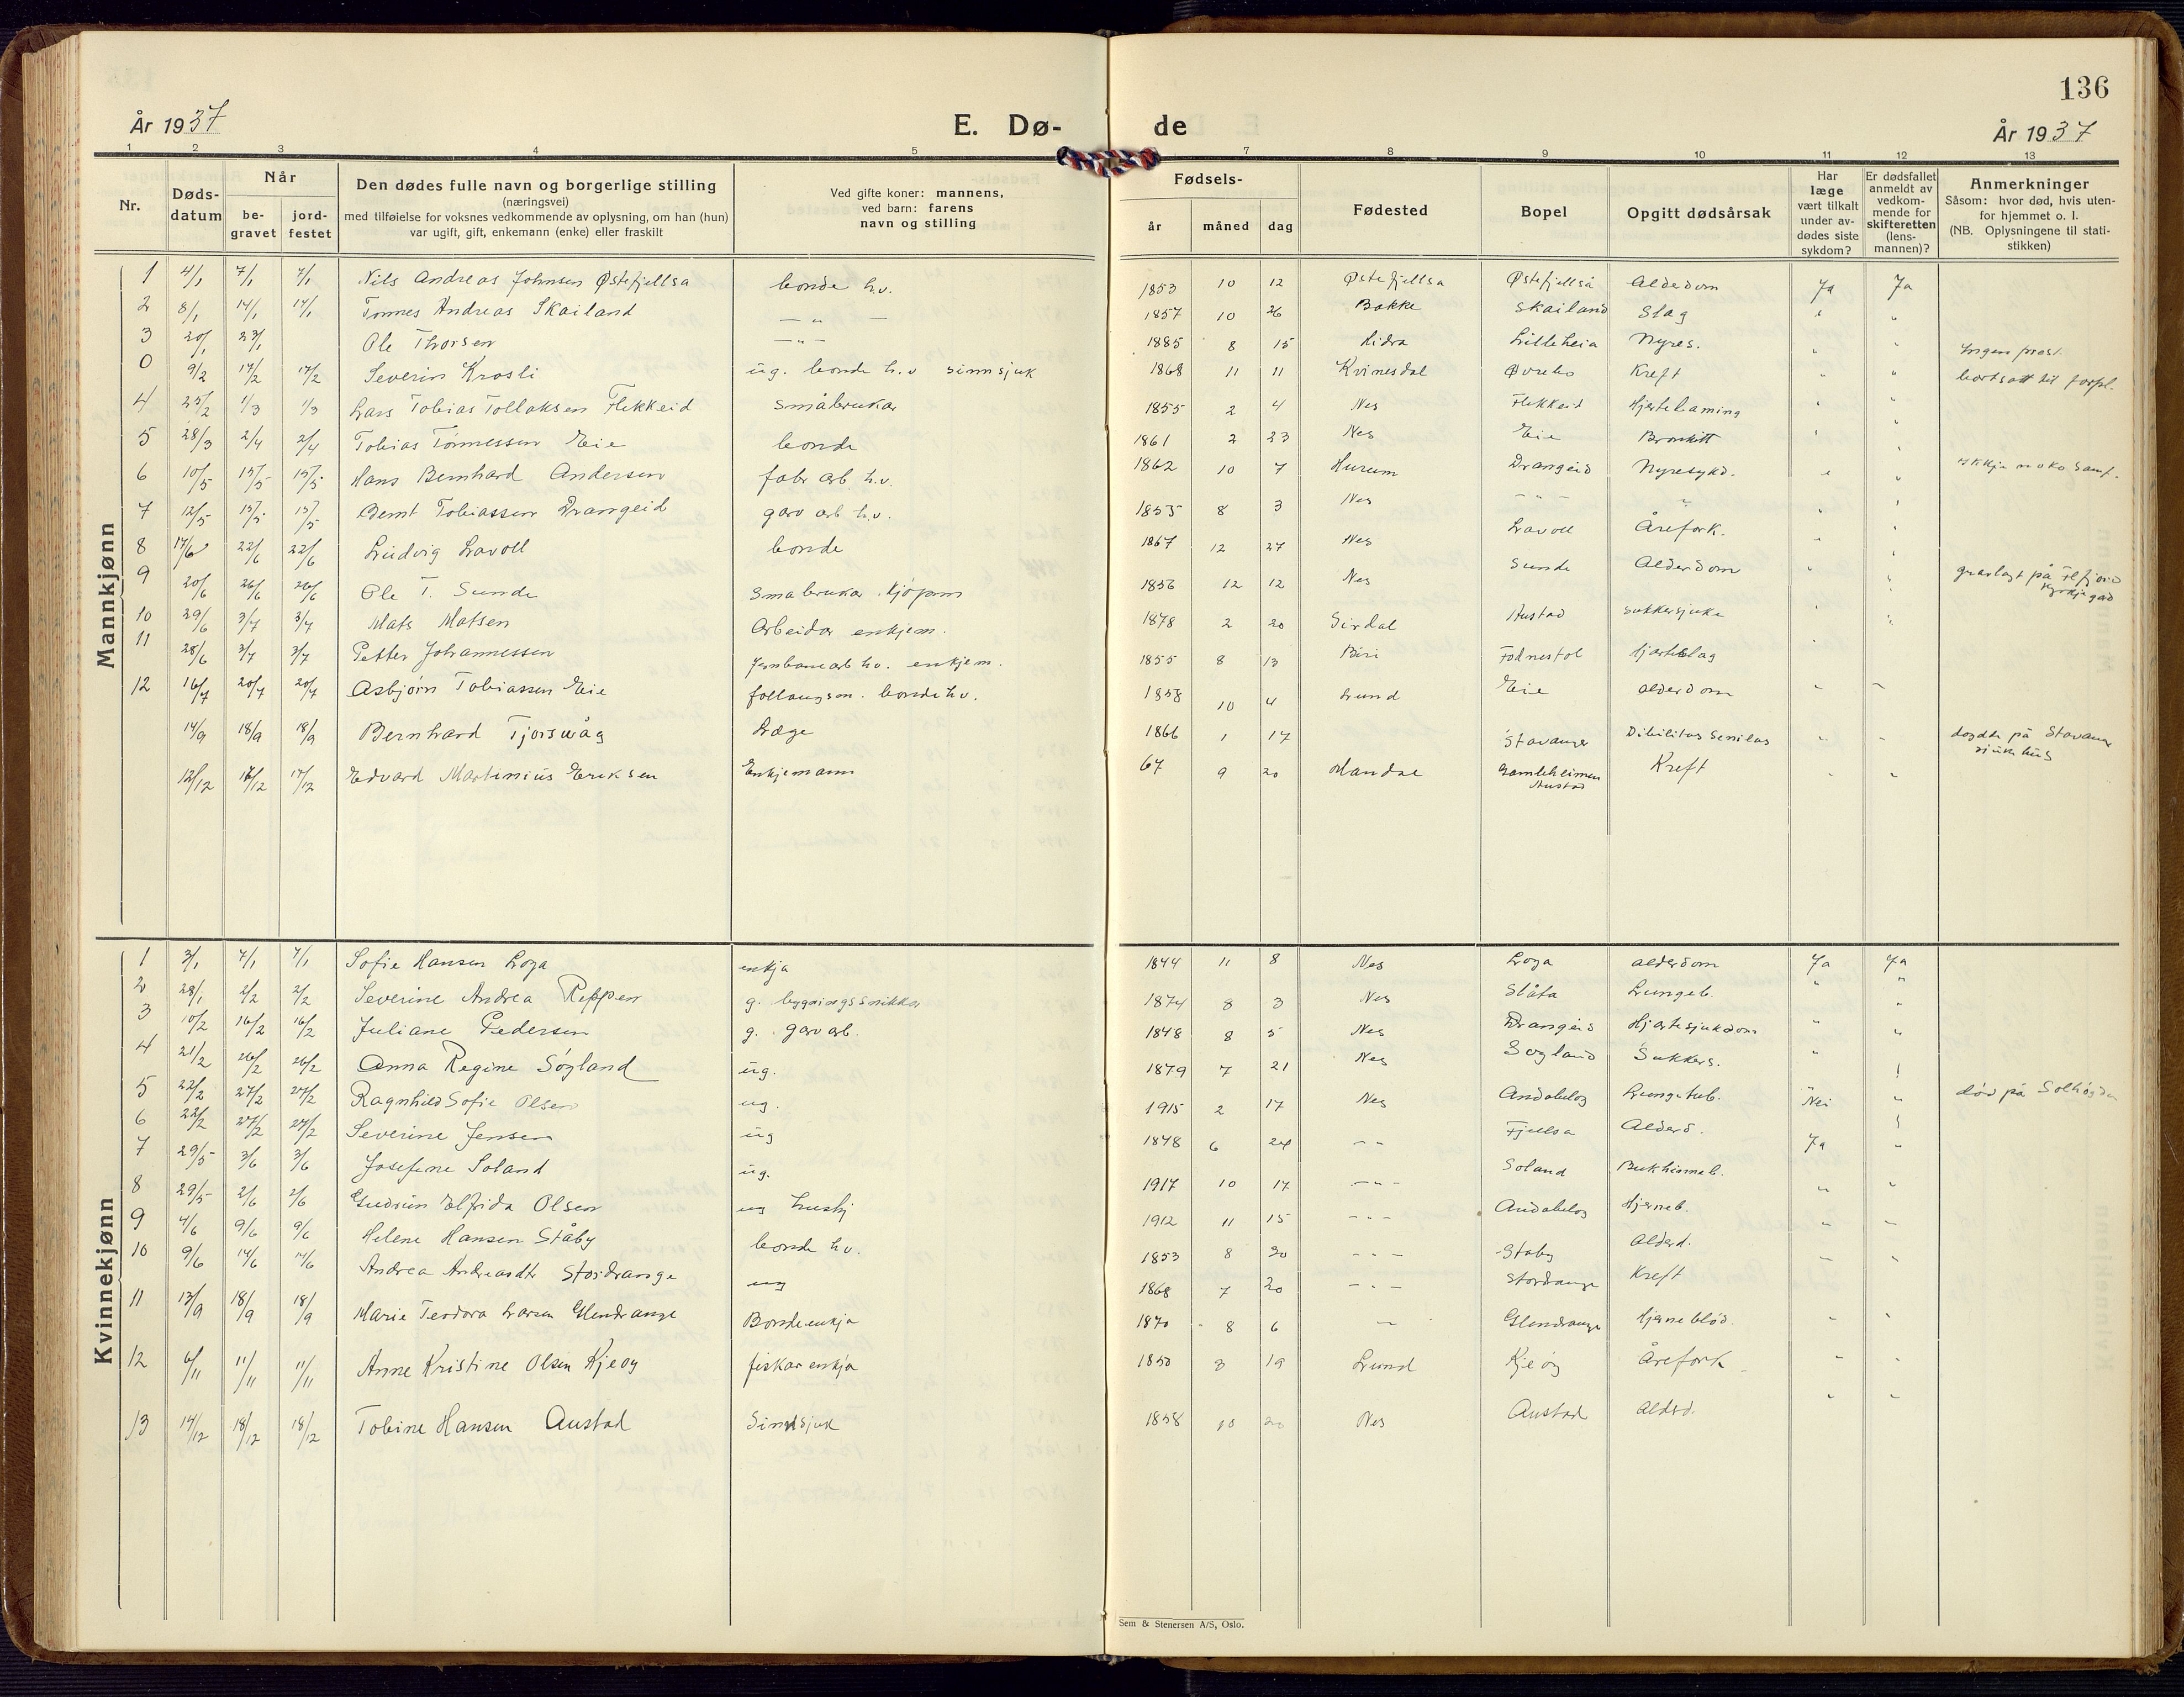 136
År 1937
E. Dø-
de
År 1937
1 2 3 4 5 7 8 9 10 11 12 13
Nr.
Døds-
datum
Når
be-
gravet
jord-
festet
Den dødes fulle navn og borgerlige stilling
(næringsvei)
med tilføielse for voksnes vedkommende av oplysning, om han (hun)
var ugift, gift, enkemann (enke) eller fraskilt
Ved gifte koner: mannens,
ved barn: farens
navn og stilling
Fødsels-
år
måned
dag
Fødested
Bopel
Opgitt dødsårsak
Har
læge
vært tilkalt
under av-
dødes siste
sykdom?
Er dødsfallet
anmeldt av
vedkom-
mende for
skifteretten
(lens-
mannen)?
Anmerkninger
Såsom: hvor død, hvis uten-
for hjemmet o. l.
(NB. Oplysningene til stati-
stikken)
Mannkjønn
1 4/1 7/1 7/1 Nils Andreas Johnsen Østefjellså bonde h.v. 1853 10 12 Østefjellså Østefjellså Alderdom Ja Ja
2 8/1 14/1 14/1 Tønnes Andreas Skailand — " — 1857 10 26 Bakke Skailand Slag " "
3 20/1 23/1 Ole Thorsen — " — 1885 8 15 Hidra Lilleheia Nyres. " " Ingen prest.
0 9/2 14/2 14/2 Severin Krosli ug. bonde h.v sinnsjuk 1868 11 11 Kvinesdal Øvrebø Kreft " " bortsatt til forpl.
4 25/2 1/3 1/3 Lars Tobias Tollaksen Flikkeid småbrukar 1855 2 4 Nes Flikkeid Hjertelaming " "
5 28/3 2/4 2/4 Tobias Tønnessen Eie bonde 1861 2 23 Nes Eie Bronkitt " "
6 10/5 15/5 15/5 Hans Bernhard Andersen fabr arb. h.v. 1862 10 7 Hurum Drangeid Nyresykd. " "
7 12/5 15/5 15/5 Bernt Tobiassen Drangeid garv arb h.v. 1855 8 3 Nes — " — " " "
8 17/6 22/6 22/6 Ludvig Lavoll bonde 1867 12 27 Nes Lavoll Årefork. " "
9 20/6 26/6 26/6 Ole T. Sunde småbrukar. kjøpm 1856 12 12 Nes Sunde Alderdom " " gravlagt på
10 29/6 3/7 3/7 Mats Matsen Arbeidar enkjem. 1878 2 20 Sirdal Austad sukkersjuke " "
11 28/6 3/7 3/7 Petter Johannessen Jernbanearb h.v. enkjem. 1855 8 13 Biri Fodnestøl Hjarteslag "
12 16/7 20/7 20/7 Asbjørn Tobiassen Eie follaugsm. bonde h.v. 1858 10 4 Lund Eie alderdom " "
14/9 18/9 18/9 Bernhard Tjorswåg Læge 1866 1 17 Stavanger Dibilitas Senilas " " døydde på Stavanger
sjukehus
12/12 17/12 17/12 Edvard Martinius Eriksen Enkjemann 67 9 20 Mandal Gamleheimen Kreft " "
Austad
Kvinnekjønn
1 3/1 7/1 7/1 Sofie Hansen Loga enkja 1844 11 8 Nes Loga alderdom Ja Ja
2 28/1 2/2 2/2 Severine Andrea Reppen g. bygningssnikkar 1874 8 3 Nes Slåta Lungeb. " "
3 10/2 16/2 16/2 Juliane Pedersen g. garvarb. 1848 8 5 Nes Drangeid Hjartesjukdom " "
4 21/2 26/2 26/2 Anna Regine Søyland ug. 1879 7 21 Nes Søyland Sukkers. "
5 22/2 27/2 27/2 Ragnhild Sofie Olsen ug. 1915 2 17 Nes Andabeløy Lungetub. Nei " død på Solhøgda
6 22/2 27/2 27/2 Severine Jensen ug 1848 6 24 — " Fjellså Alderd. Ja "
7 29/5 3/6 3/6 Josefine Soland ug. 1917 10 17 — " — Soland Bukhinneb. " "
8 29/5 2/6 2/6 Gudrun Elfrida Olsen ug huskj 1912 11 15 — " — Andabeløy Hjerneb. " "
9 4/6 9/6 9/6 Helene Hansen Ståby bonde h.v. 1853 8 20 — " — Ståby Alderd. " "
10 9/6 14/6 14/6 Andrea Andreasdtr Stordrange ug 1868 7 20 — " — Stordrange Kreft
11 13/9 18/9 18/9 Marie Teodora Larsen Glendrange Bondeenkja 1870 8 6 — Glendrange Hjerneblød. " "
12 6/11 11/11 11/11 Anne Kristine Olsen Kjeøy fiskarenkja 1850 3 19 Lund Kjeøy Årefork " "
13 14/12 18/12 18/12 Tobine Hansen Austad Sinnsjuk 1858 10 20 Nes Austad Alderd. " "
Sem & Stenersen A/S, Oslo.